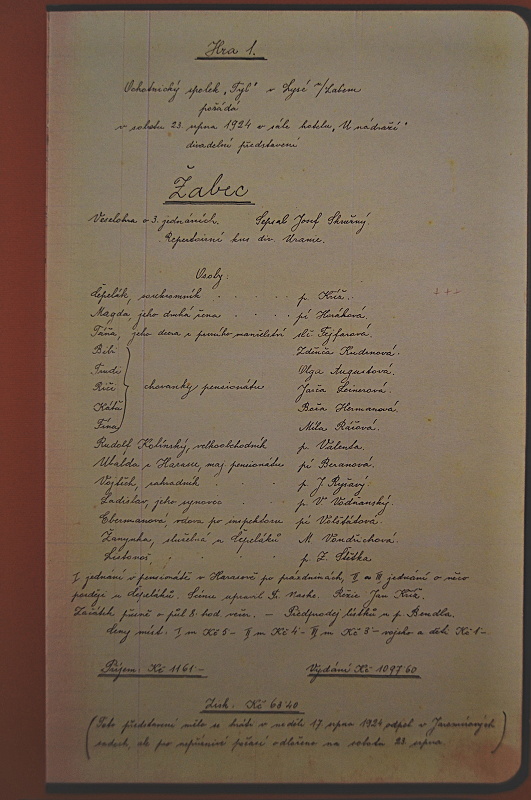 Hra 1.
Ochotnický spolek „Tyl" v Lysé n/Labem
pořádá
v sobotu 23. srpna 1924 v sále hotelu „U nádraží"
divadelní představení
Žabec
Veselohra o 3. jednáních. Sepsal Josef Skružný.
Repertoirní kus div. Uranie.
Osoby:
Čepelák, soukromník . . . . . p. Kříž.
Magda, jeho druhá žena . . . . pí Horáková.
Táňa, jeho dcera z prvního manželství slč. Fejfarová.
Bebi Zdeňča Kudrnová.
Trudi Olga Augustová.
Riči chovanky pensionátu Jarča Leinerová.
Kátě Boža Hermanová.
Fína Míla Rážová.
Rudolf Kotínský, velkoobchodník p. Valenta.
z Harasu, maj. pensionátu pí Beranová.
Vojtěch, zahradník . . . p. J. Ryšavý.
Ladislav, jeho synovec p. V. Vodňanský.
Ebermanová, vdova po inspektoru pí Volštátová.
Žanynka, služebná u Čepeláků M. Vondruchová.
Listonoš . . . . p. Z. Štětka
I jednání v pensionátě v Harasově po prázdninách, II a III jednání o něco
později u Čepeláků. Scénu upravil Fr. Režie Jan Kříž.
Začátek přesně o půl 8. hod. več. — Předprodej lístků u p. Bendla.
Ceny míst: I m Kč 5- II m Kč 4- III m Kč 3- vojsko a děti Kč 1-
Příjem: Kč 1161.- Vydání Kč 1097.60
Zisk: Kč 63.40
(Toto představení mělo se hráti v neděli 17. srpna 1924 odpol. v
sadech, ale pro nepříznivé počasí odloženo na sobotu 23. srpna.)